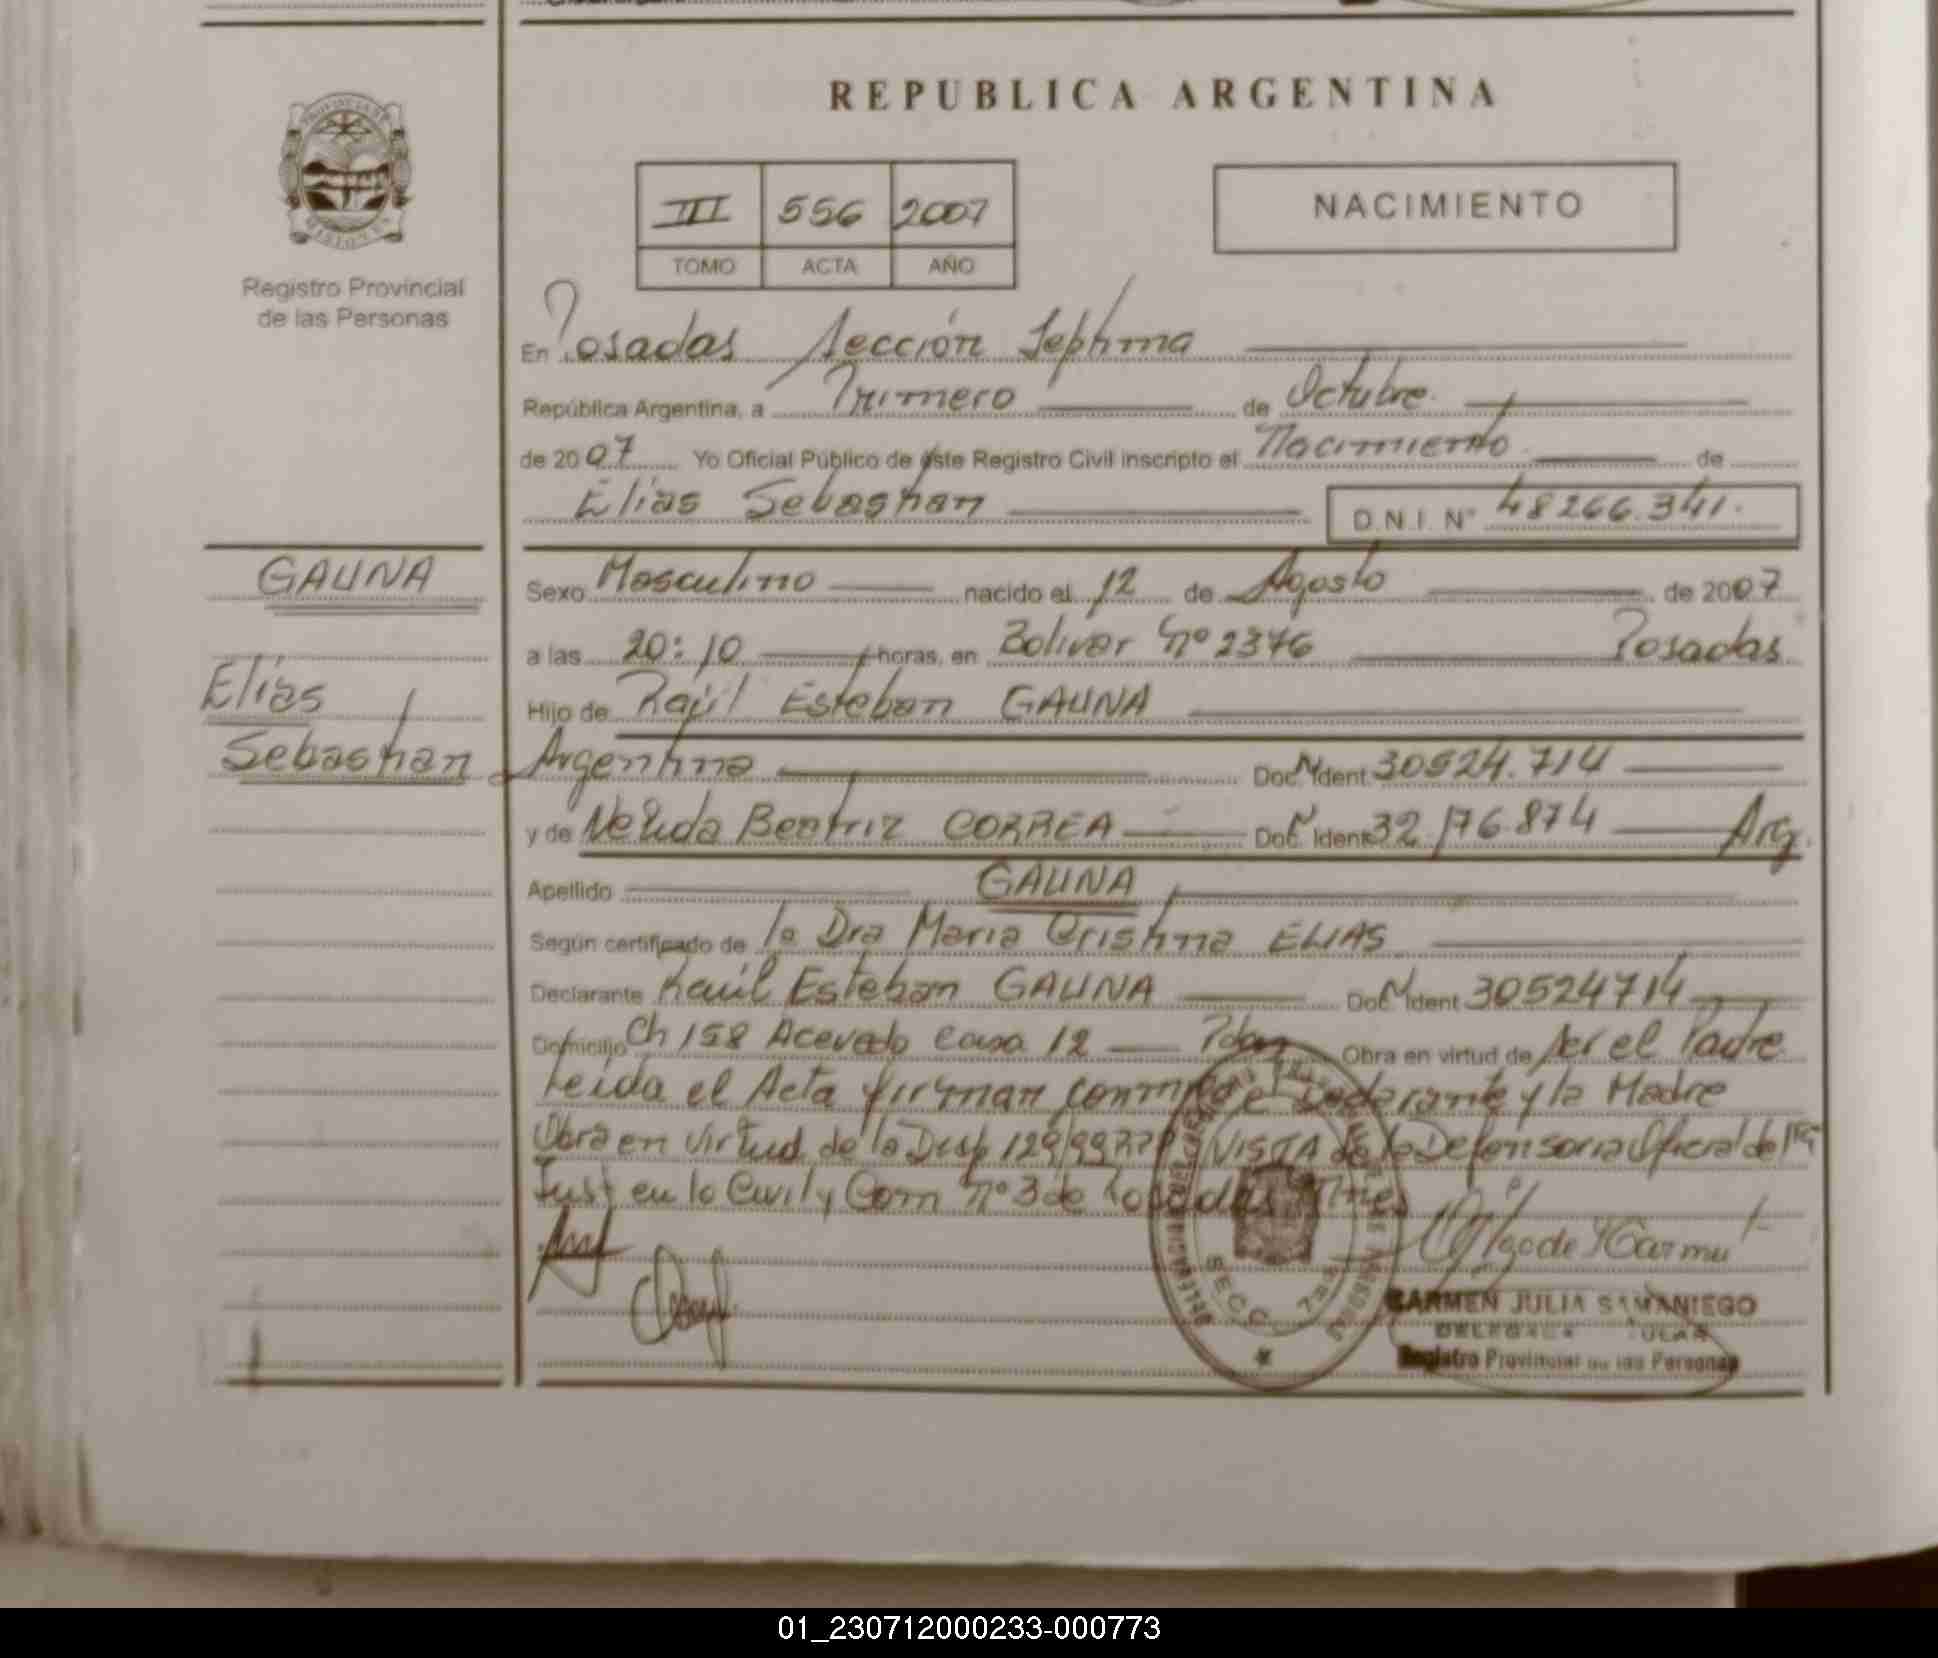 REPUBLICA ARGENTINA
III 556 2007
TOMO ACTA AÑO
NACIMIENTO
Registro Provincial
de las Personas
En Posadas Sección Septima
República Argentina, a Primero de Octubre
de 2007 Yo Oficial Público de éste Registro Civil inscripto el Nacimiento de
Elias Sebastian D.N.I. N° 48266.341.
GAUNA
Elias
Sebastian
Sexo Masculino nacido el 12 de Agosto de 2007
a las 20:10 horas, en Bolivar Nº 2376 Posadas
Hijo de Raúl Esteban GAUNA
Argentina Doc. Ident 30524.714
y de Nelida Beatriz CORREA Doc. Ident 32176.874 Arg.
Apellido GAUNA
Según certificado de la Dra Maria Cristina ELIAS
Declarante Raúl Esteban GAUNA Doc. Ident 30524714
Domicilio Ch 158 Acevedo Casa 12 Pdas Obra en virtud de ser el Padre
Leida el Acta firman conmigo el Declarante y la Madre
Obra en virtud de la Disp 129/99 VISTA de la Defensoria Oficial de
Inst en lo Civil y Com Nº 3 de Posadas Mnes
SECC. 7ma
CARMEN JULIA SAMANIEGO
Registro Provincial de las Personas
01_230712000233-000773